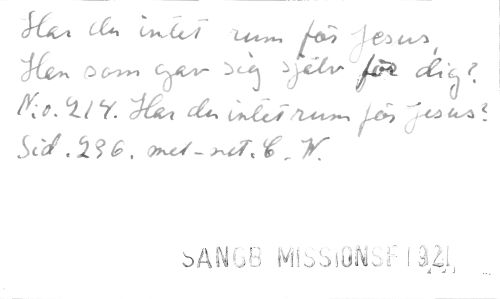 Har du intet rum för Jesus,
Han som gav sig själv för dig?
N:o. 214. Har du intet rum för Jesus?
Sid. 296. mel-not. C. W.
SANGB MISSIONSF 1921